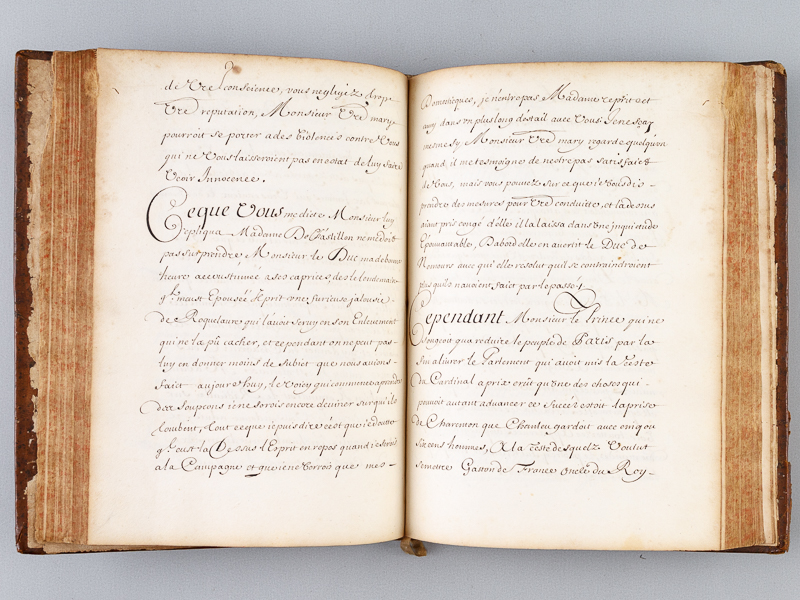 de Vre Conscience, vous negligiez trop
Vre reputation, Monsieur Vre mary
pourroit se porter a des Violences contre Vous
qui ne Vous laisseroient pas en estat de luy faire
Veoir Innocence.
Ce que Vous me dites Monsieur luy
repliqua Madame De Chastillon ne me doit
pas surprendre, Monsieur le Duc ma de bonne
heure accoustumée a ses caprices, des le lendemain
qu'il meust Epousée Il prit une furieuse jalousie
de Roquelaure qui l'auoit seruy en son Enleuement
qui ne la pû cacher, et cependant on ne peut pas
luy en donner moins de Subiet que nous auions
fait aujourd'huy, le voicy qui commence a prendre
des soupcons ie ne sçrois encore deviner sur qui ils
tombent, tout ce que ie puis dire c'est que ie doutte
qu'il eust la Dessus l'Esprit en repos quand ie serois
a la Campagne et que ie ne Verrois que mes -
Domesticques, je n'entre pas Madame reprit ce
auy dans vn plus long destail auec Vous
mesme sy Monsieur Vre mary regarde quelqu'un
quand il me tesmoigne de n'estre pas satisfait
de Vous, mais vous pouuez sur ce que ie vous dis
prendre des mesures pour Vre conduitte, et la dessus
ayant pris congé d'elle il la laissa dans vne inquietude
Epouuantable, D'abord elle en auertit le Duc de
Nemours auec qui elle resolut qu'ils se contraindroient
plus qu'ils n'auoient faict par le passé.
Cependant Monsieur le Prince qui ne
songeoit qua reduire le peuple de Paris par la
faim a liurer le Parlement qui auoit mis la teste
du Cardinal a prix crût qu'une des choses qui
pouuoit autant aduancer ce Succéz estoit la prise
de Charenton que Chanleu gardoit auec cinq ou
six cens hommes, A la teste desquelz Voulut
se mettre Gaston de France oncle du Roy -